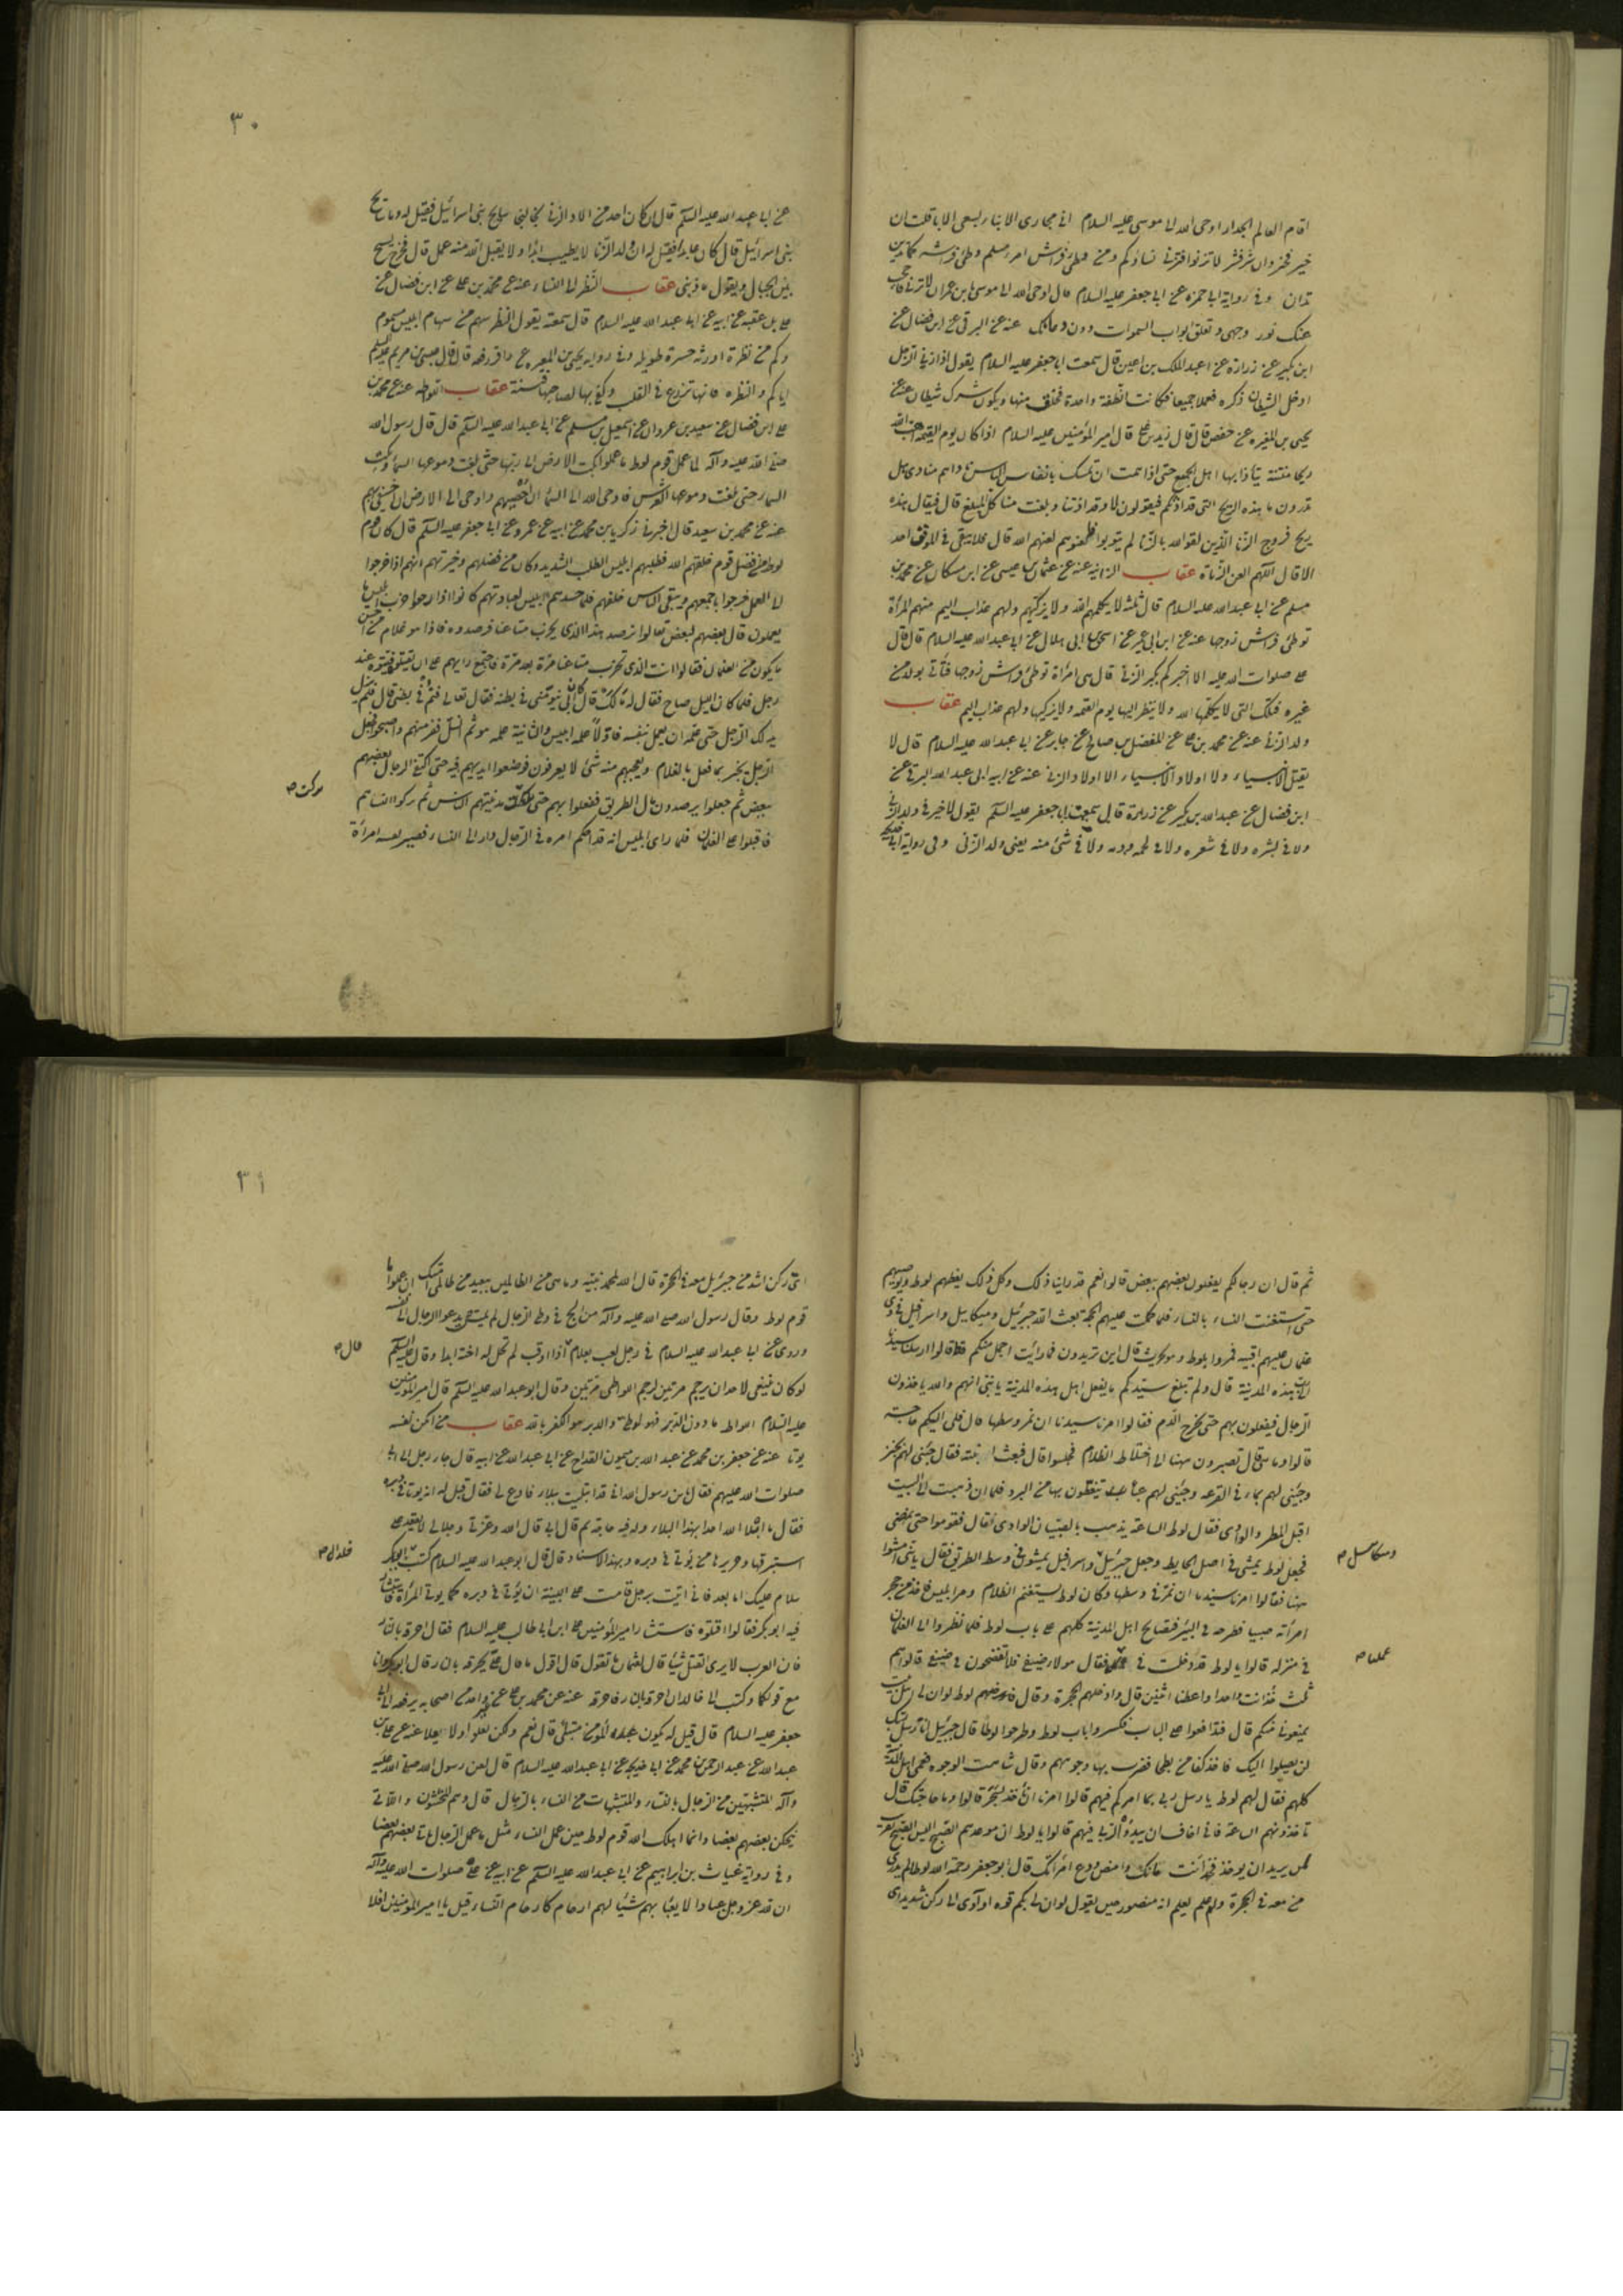 اقام العالم الجدار اوحى الله الى موسى عليه السلام انى مجازى الابناء بسعى الاباء ان
خير فخير وان شر فشر لا تزنوا فتزنى نساؤكم ومن وطئ فراش امرء مسلم وطئ فراشه كما تدين
تدان وفى رواية ابى حمزة عن ابى جعفر عليه السلام قال اوحى الله الى موسى بن عمران لا تزن فاحجب
عنك نور وجهى وتغلق ابواب السموات دون دعائك عنه عن البرقى عن ابن فضال عن
ابن بكير عن زرارة عن عبد الملك بن اعين قال سمعت ابا جعفر عليه السلام يقول اذا زنى الرجل
ادخل الشيطان ذكره فعملا جميعا فكانت النطفة واحدة فخلق منها ويكون شرك شيطان عنه عن
يحيى بن المغيره عن حفص قال قال زيد بن على قال امير المؤمنين عليه السلام اذا كان يوم القيمة اهب الله
ريحا منتنة يتأذى بها اهل الجمع حتى اذا همت ان تمسك بانفاس الناس ناداهم مناد هل
تدرون ما هذه الريح التى قد اذتكم فيقولون لا وقد اذتنا وبلغت منا كل المبلغ قال فيقال هذه
ريح فروج الزنا الذين لقوا الله بالزنا لم يتوبوا فالعنوهم لعنهم الله قال فلا يبقى فى الموقف احد
الا قال اللهم العن الزناة عقاب الزانيه عنه عن عثمان بن عيسى عن ابن مسكان عن محمد بن
مسلم عن ابى عبد الله عليه السلام قال ثلثة لا يكلمهم الله ولا يزكيهم ولهم عذاب اليم منهم المرأة
توطئ فراش زوجها عنه عن ابن ابى عمير عن اسحق بن ابى هلال عن ابى عبد الله عليه السلام قال قال
على صلوات الله عليه الا اخبركم بكبر الزنى قال هى امرأة توطئ فراش زوجها فتأتى بولد من
غيره فتلك التى لا يكلمها الله ولا ينظر اليها يوم القيمه ولا يزكيها ولهم عذاب اليم عقاب
ولد الزنا عنه عن محمد بن على عن المفضل بن صالح عن جابر عن ابى عبد الله عليه السلام قال لا
يقتل الانبياء ولا اولاد الانبياء الا اولاد الزنى عنه عن ابيه ابى عبد الله البرقى عن
ابن فضال عن عبد الله بن بكير عن زرارة قال سمعت ابا جعفر عليه السلم يقول لا خير فى ولد الزنى
ولا فى بشره ولا فى شعره ولا فى لحمه ودمه ولا فى شئ منه يعنى ولد الزنى وفى رواية ابى خديجه
٣٠
عن ابى عبد الله عليه السلم قال ان كان احد من الاد الزنى نجا لنجى سايح بنى اسرائيل فقيل له وما سايح
بنى اسرائيل قال كان عابدا فقيل له ان ولد الزنا لا يطيب ابدا ولا يقبل الله منه عمل قال فخرج يسيح
بين الجبال ويقول ما ذنبى عقاب النظر الى النساء عنه عن محمد بن على عن ابن فضال عن
على بن عقبه عن ابيه عن ابى عبد الله عليه السلام قال سمعته يقول النظر سهم من سهام ابليس مسموم
وكم من نظرة اورثه حسرة طويله وفى رواية يحيى بن المغيره عن ذافر رفعه قال قال عيسى بن مريم عليه السلم
اياكم والنظره فانها تزرع فى القلب وكفى بها لصاحبها فتنة عقاب اللواطه عنه عن محمد بن
على عن ابن فضال عن سعيد بن غزوان عن اسمعيل بن مسلم عن ابى عبد الله عليه السلم قال قال رسول الله
صلى الله عليه وآله لما عمل قوم لوط ما عملوا بكت الارض الى ربها حتى بلغت دموعها السماء وبكت
السماء حتى بلغت دموعها العرش فاوحى الله الى السماء ان احصبيهم واوحى الى الارض ان اخسفى بهم
عنه عن محمد بن سعيد قال اخبرنى زكريا بن محمد عن ابيه عن عمرو عن ابى جعفر عليه السلم قال كان قوم
لوط من افضل قوم خلقهم الله فطلبهم ابليس الطلب الشديد وكان من فضلهم وخيرتهم انهم اذا خرجوا
الى العمل خرجوا باجمعهم ويبقى النساء خلفهم فلما حسدهم ابليس لعبادتهم كانوا اذا رجعوا خرب ابليس ما
يعملون قال بعضهم لبعض تعالوا نرصد هذا الذى يخرب متاعنا فرصدوه فاذا هو غلام من احسن
ما يكون من الغلمان فقالوا انت الذى تخرب متاعنا مرة بعد مرة فاجتمع رايهم على ان يقتلوه فبيتوه عند
رجل فلما كان الليل صاح فقال له مالك قال كان ابى ينومنى فى بطنه فقال تعال فنم فى بطنى قال فلم يزل
يدلك الرجل حتى علمه ان يعمل بنفسه فاولا علمه ابليس والثانية علمه هو ثم انسل ففر منهم واصبحوا فجعل
الرجل يخبر بما فعل بالغلام ويعجبهم منه شئ لا يعرفونه فوضعوا ايديهم فيه حتى اكتفى الرجال بعضهم
ببعض ثم جعلوا يرصدون مال الطريق ففعلوا بهم حتى مدينتهم الناس ثم تركوا النساء ثم
فاقبلوا على الغلمان فلما راى ابليس انه قد احكم امره فى الرجال دار الى النساء فصير نفسه امرأة
ثم قال ان رجالكم يفعلون بعضهم ببعض قالوا نعم قد راينا ذلك وكل ذلك يعظهم لوط ويوصيهم
حتى استغنت النساء بالنساء فلما كملت عليهم الحجة بعث الله جبرئيل وميكاييل واسرافيل فى زى
غلمان عليهم اقبيه فمروا بلوط وهو يحرث قال اين تريدون فما رأيت اجمل منكم قط قالوا ارسلنا سيدنا
الى رب هذه المدينة قال ولم يبلغ سيدكم ما يفعل اهل هذه المدينة يا بنى انهم والله ياخذون
الرجال فيفعلون بهم حتى يخرج الدم فقالوا امرنا سيدنا ان نمر وسطها قال فلى اليكم حاجته
قالوا وما هى قال تصبرون هيهنا الى اختلاط الظلام فجلسوا قال فبعث ابنته فقال جيئى لهم بخبز
وجيئى لهم بماء فى القرعه وجيئى لهم عباء يتغطون بها من البرد فلما ان ذهبت الى البيت
اقبل المطر والوادى فقال لوط الساعة يذهب بالصبيان الوادى فقال قوموا حتى نمضى
فجعل لوط يمشى فى اصل الحايط وجعل جبرئيل واسرافيل يمشون فى وسط الطريق فقال يا بنى امشوا
هيهنا فقالوا امرنا سيدنا ان نمر فى وسطها وكان لوط يستغنم الظلام ومر ابليس فاخذ من حجر
امرأته صبيا فطرحه فى البئر فتصايح اهل المدينة كلهم على باب لوط فلما نظروا الى الغلمان
فى منزله قالوا يا لوط قد دخلت فى عملنا فقال هؤلاء ضيفى فلا تفضحون فى ضيفى قالوا هم
ثلثة خذ انت واحدا واعطنا اثنين قال وادخلهم الحجرة وقال لوط لو ان لى اهل بيت
يمنعونى منكم قال فتدافعوا على الباب فكسروا باب لوط وطرحوا لوطا قال جبرئيل انا رسل ربك
لن يصلوا اليك فاخذ كفا من بطحا فضرب بها وجوههم وقال شاهت الوجوه فعمى اهل المدينة
كلهم فقال لهم لوط يا رسل ربى بما امركم فيهم قالوا امرنا ان نأخذهم بالسحر قالوا وما حاجتك قال
تاخذونهم الساعة فانى اخاف ان يبدو لربى فيهم قالوا يا لوط ان موعدهم الصبح اليس الصبح بقريب
لمن يريد ان يوخذ فخذ انت بناتك وامض ودع امرأتك قال ابو جعفر رحمة الله لوطا لم يدرى
من معه فى الحجرة ولم يعلم انه منصور حين يقول لو ان لى بكم قوه او آوى الى ركن شديد اى
٣١
اى ركن اشد من جبرئيل معه فى الحجرة قال الله لمحمد نبيه وما هى من الظالمين ببعيد من ظالمى امتك ان عملوا ما
قوم لوط وقال رسول الله صلى الله عليه وآله من الح فى وطى الرجال لم يمت حتى يدعو الرجال الى نفسه
وروى عن ابى عبد الله عليه السلام فى رجل لعب بغلام اذا اوقب لم تحل له اخته ابدا وقال عليه السلم
لو كان ينبغى لاحد ان يرجم مرتين لرجم اللواطى مرتين وقال ابو عبد الله عليه السلم قال امير المؤمنين
عليه السلام اللواط ما دون الدبر فهو لوطى والدبر هو الكفر بالله عقاب من امكن نفسه
يوتا عنه عن جعفر بن محمد عن عبد الله بن ميمون القداح عن ابى عبد الله عن ابيه قال جاء رجل الى ابى
صلوات الله عليهم فقال يابن رسول الله انى قد ابتليت ببلاء فادع لى فقال قيل له انه يوتا فى دبره
فقال ما ابتلا الله احدا بهذا البلاء وله فيه حاجة ثم قال ابى قال الله وعزتى وجلالى لا يقعد على
استبرقها وحريرها من يؤتى فى دبره وبهذا الاسناد قال قال ابو عبد الله عليه السلام كتب ابو بكر
سلام عليك اما بعد فانى اتيت برجل قامت عليه البينه ان يؤتى فى دبره كما يوتى المرأة فاستشار
فيه ابو بكر فقالوا اقتلوه فاستشار امير المؤمنين على ابن ابى طالب عليه السلام فقال احرقه بالنار
فان العرب لا يرى القتل شيئا قال لعثمان ما تقول قال اقول ما قال على تحرقه بالنار قال ابو بكر وانا
مع قولكما وكتب الى خالد ان احرقه بالنار فاحرقه عنه عن محمد بن على عن واحد من اصحابه يرفعه الى ابى
جعفر عليه السلام قال قيل له يكون المؤمن مبتلى قال نعم ولكن يعلو ولا يعلا عنه عن على بن
عبد الله عن عبد الرحمن بن محمد عن ابى خديجه عن ابى عبد الله عليه السلام قال لعن رسول الله صلى الله عليه
وآله المتشبهين من الرجال بالنساء والمتشبهات من النساء بالرجال قال وهم المخنثون واللاتى
ينكحن بعضهم بعضا وانما اهلك الله قوم لوط حين عمل النساء مثل ما عمل الرجال ياتى بعضهم بعضا
وفى رواية غياث بن ابراهيم عن ابى عبد الله عليه السلم عن ابيه عن على صلوات الله عليه وآله
ان لله عز وجل عبادا لا يعبا بهم شيئا لهم ارحام كارحام النساء قيل يا امير المؤمنين افلا